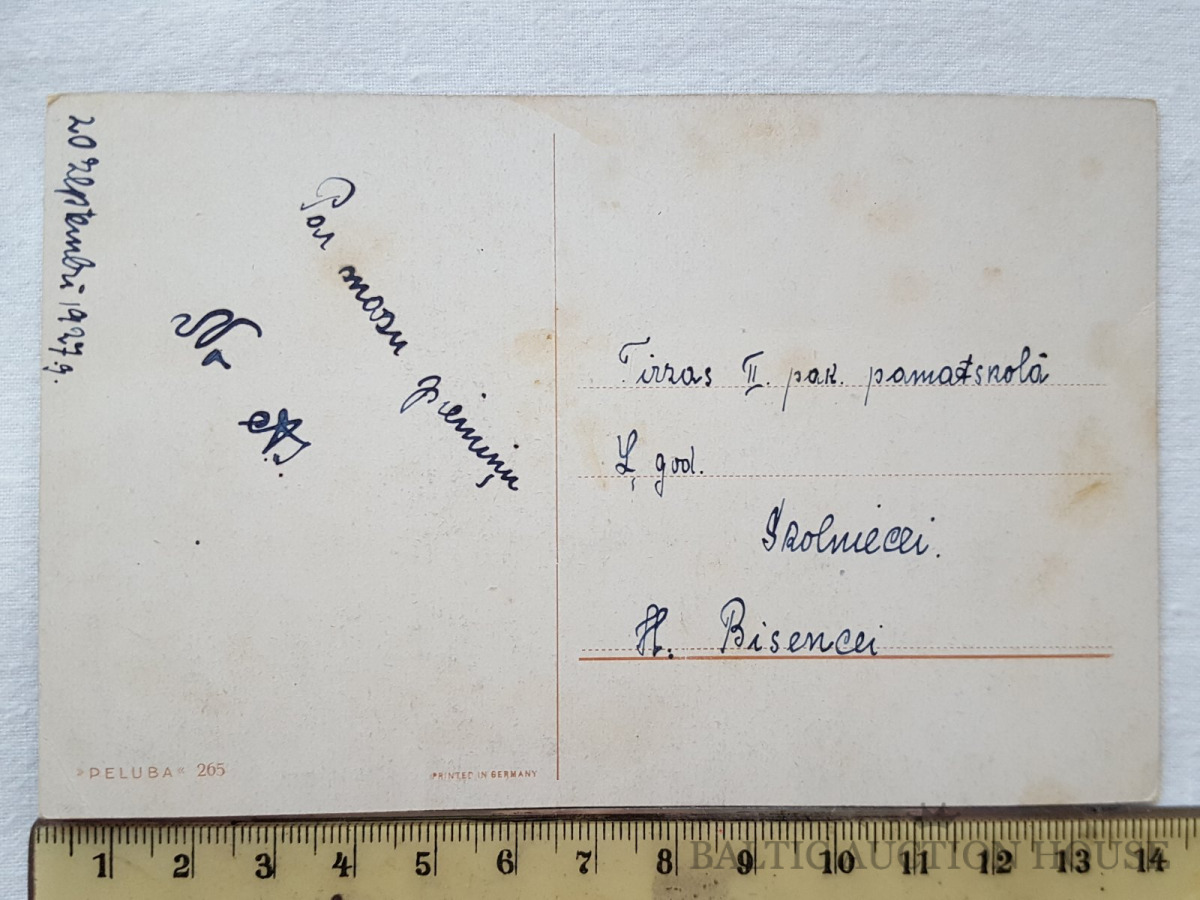 20 Septembrī 1927.g.
Par mazu piemiņu
No A.
Tirzas II. pak. pamatskolā
Ļ. god.
Skolniecei.
H. Bisencei
»PELUBA« 265
PRINTED IN GERMANY
1 2 3 4 5 6 7 8 9 10 11 12 13 14
BALTIC AUCTION HOUSE